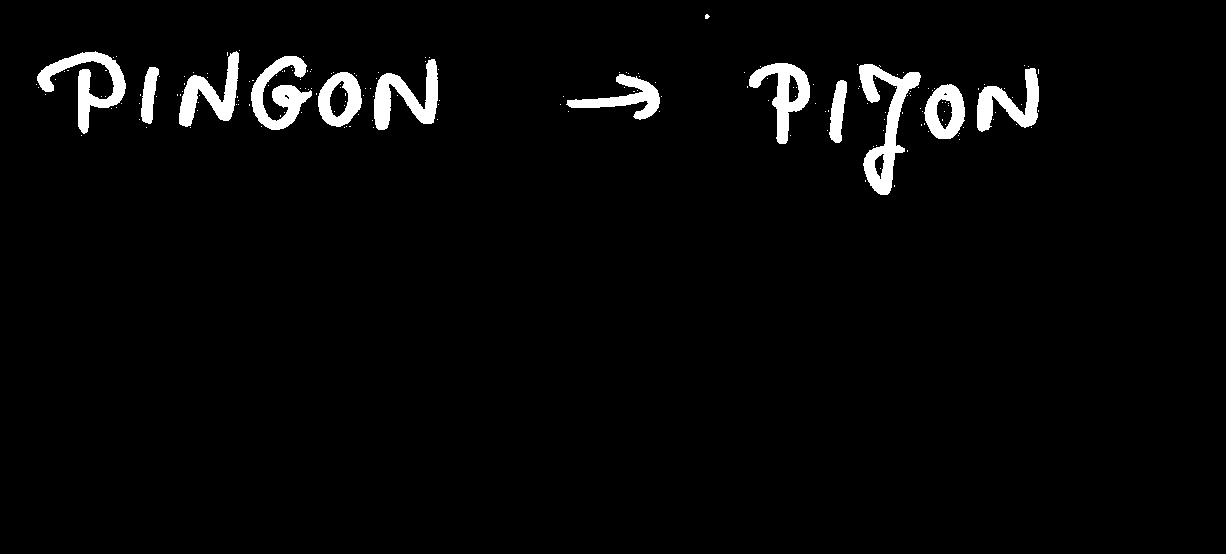 PINGON → PIJON